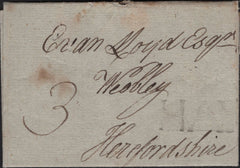 Evan Lloyd Esqr
Weobley
3
Herefordshire